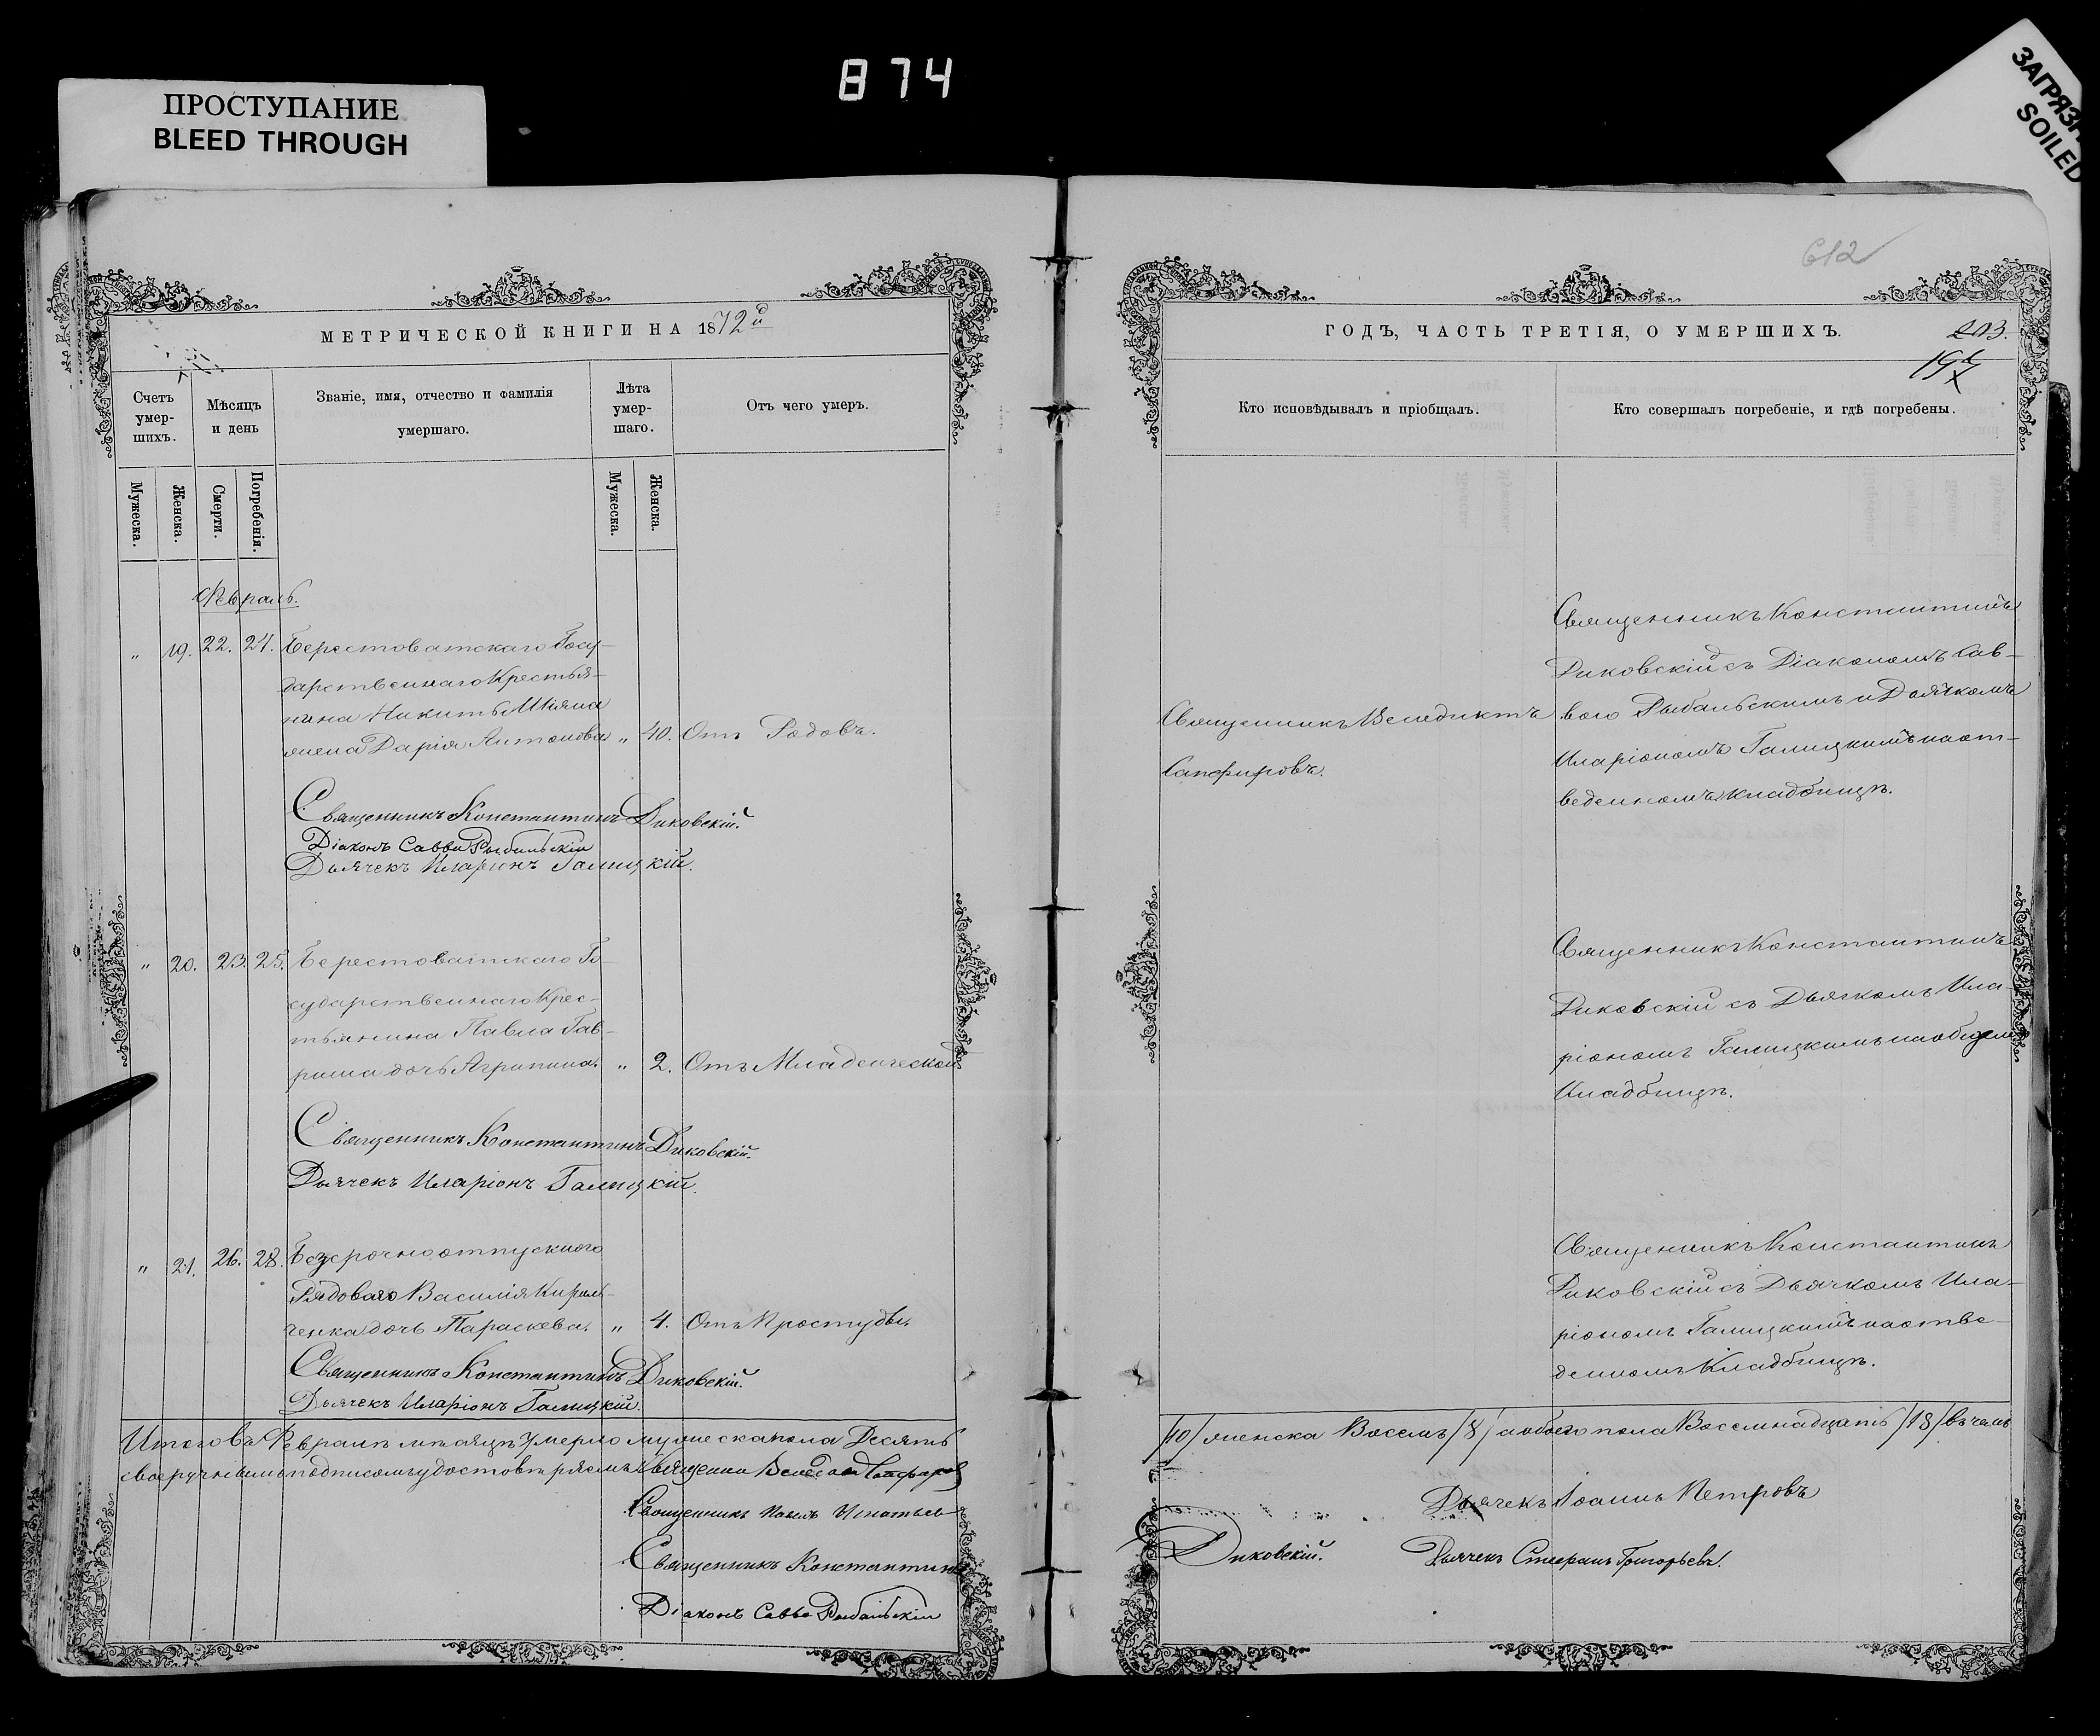 874
ПРОСТУПАНИЕ
BLEED THROUGH
ЗАГРЯЗН
SOILED
612
МЕТРИЧЕСКОЙ КНИГИ НА 1872й
Счетъ умер-шихъ.
Мѣсяцъ и день
Званіе, имя, отчество и фамилія умершаго.
Лѣта умер-шаго.
Отъ чего умеръ.
Мужеска.
Женска.
Смерти.
Погребенія.
Мужеска.
Женска.
Февраль.
„ 19. 22. 24. Берестоватскаго Госу-
дарственнаго Крестья-
нина Никиты Шіяна
жена Дарія Антонова „ 40. Отъ Родовъ.
Священникъ Константинъ Диковскій.
Діаконъ Савва Рыбальскій
Дьячекъ Иларіонъ Галицкій.
„ 20. 23. 25. Берестоватскаго Го-
сударственнаго Крес-
тьянина Павла Гав-
риша дочь Агрипина. „ 2. Отъ Младенческой
Священникъ Константинъ Диковскій.
Дьячекъ Иларіонъ Галицкій.
„ 21. 26. 28. Безсрочноотпускного
Рядоваго Василія Кирил-
ченка дочь Параскева. „ 4. Отъ Простуды.
Священникъ Константинъ Диковскій.
Дьячекъ Иларіонъ Галицкій.
Итого въ Февралѣ мѣсяцѣ умерло мужеска пола Десять
своеручнымъ подписомъ удостовѣряемъ Священникъ Венедиктъ Сапфировъ
Священникъ Павелъ Игнатьев
Священникъ Константинъ
Діаконъ Савва Рыбальскій
ГОДЪ, ЧАСТЬ ТРЕТІЯ, О УМЕРШИХЪ.
203.
197
Кто исповѣдывалъ и пріобщалъ.
Кто совершалъ погребеніе, и гдѣ погребены.
Священникъ Венедиктъ
Сапфировъ.
Священникъ Константинъ
Диковскій съ Діакономъ Сав-
вою Рыбальскимъ и Дьячкомъ
Иларіономъ Галицкимъ на от-
веденномъ кладбищѣ.
Священникъ Константинъ
Диковскій съ Дьячкомъ Ила-
ріономъ Галицкимъ на общем
Кладбищѣ.
Священникъ Константинъ
Диковскій съ Дьячкомъ Ила-
ріономъ Галицкимъ на отве-
денномъ Кладбищѣ.
/10/ женска Восемь /8/ а обоего пола Восемнадцать /18/ въ чемъ
Дьячекъ Іоаннъ Петровъ
Диковскій.
Дьячекъ Стефанъ Григорьевъ.